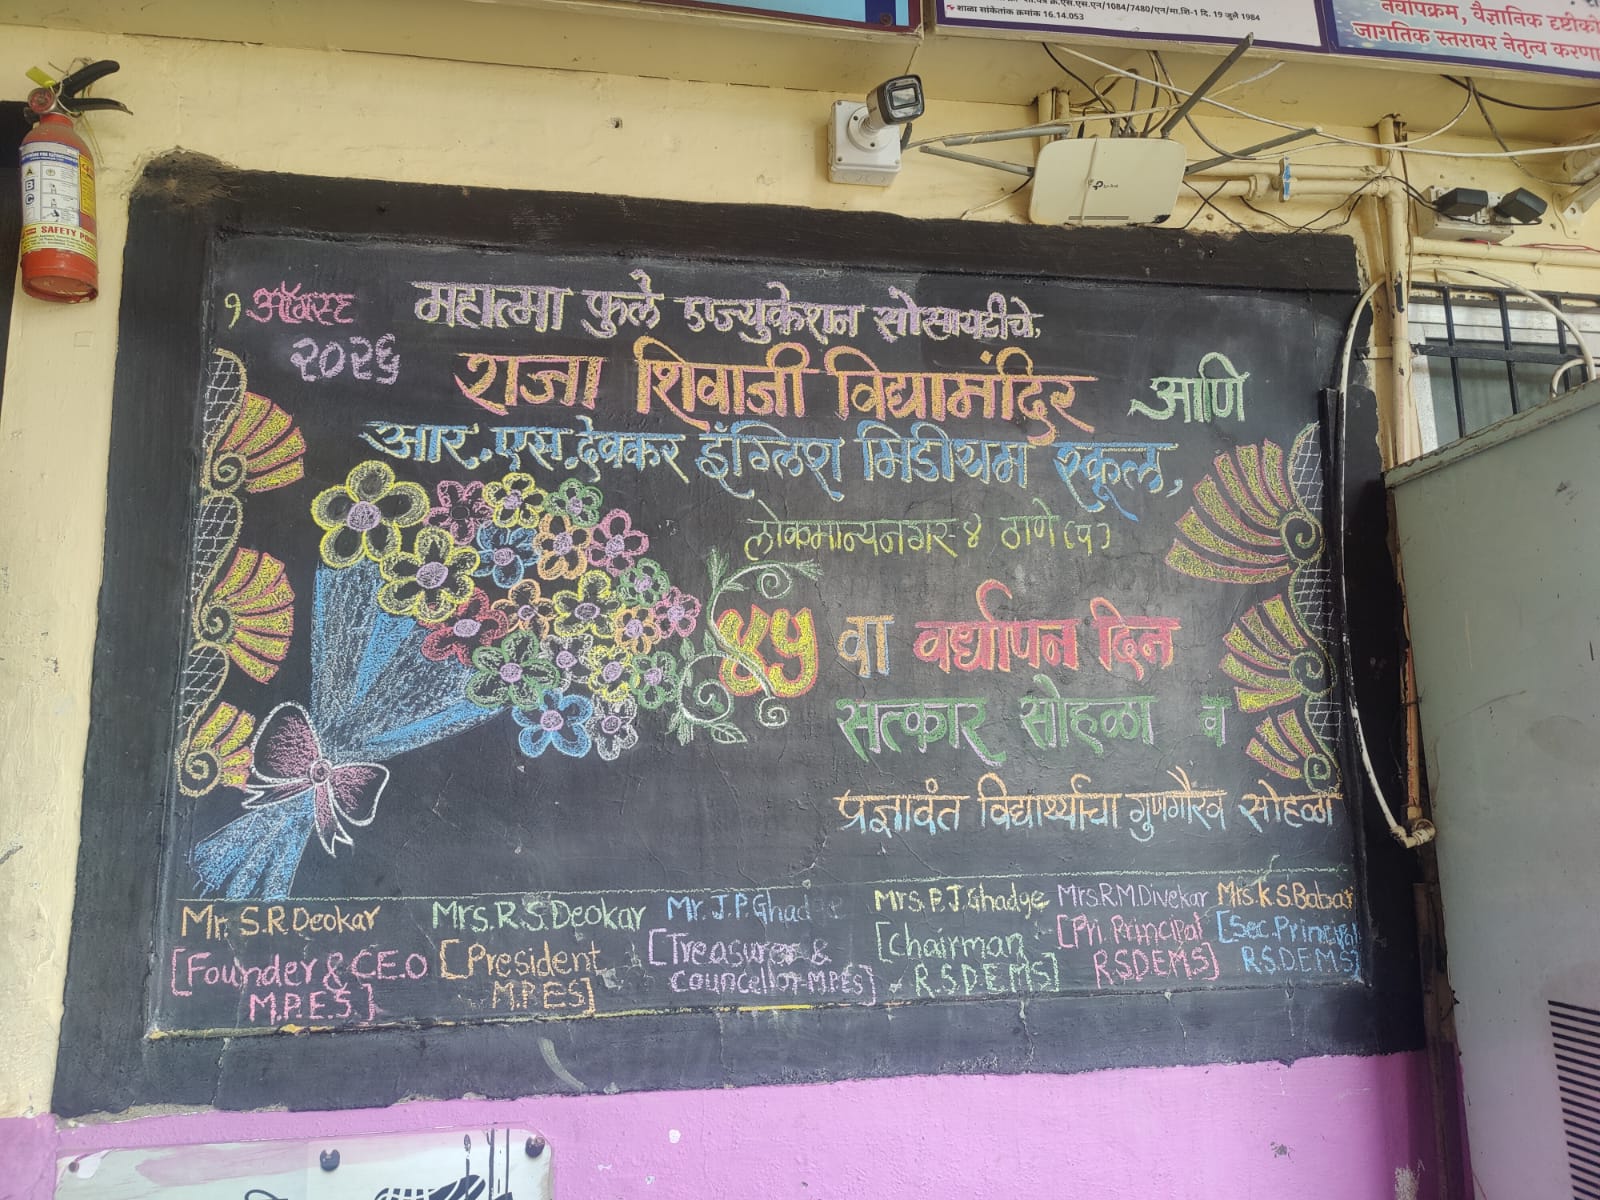 शाळा सांकेतांक क्रमांक 16.14.053
नवोपक्रम, वैज्ञानिक दृष्टीको
जागतिक स्तरावर नेतृत्व करणा
SAFETY
tp-link
१ ऑगस्ट
२०२६
महात्मा फुले एज्युकेशन सोसायटीचे,
राजा शिवाजी विद्यामंदिर आणि
आर.एस.देवकर इंग्लिश मिडीयम स्कूल,
लोकमान्यनगर ४ ठाणे (प)
४५ वा वर्धापन दिन
सत्कार सोहळा व
प्रज्ञावंत विद्यार्थ्यांचा गुणगौरव सोहळा
Mr. S.R.Deokar
[Founder & C.E.O
M.P.E.S.]
Mrs.R.S.Deokar
[President
M.P.ES]
Mr. J.P.Ghadge
[Treasurer &
Councellor-MPES]
Mrs.P.J.Ghadge
[Chairman
R.S.D.E.M.S]
Mrs.R.M.Divekar
[Pri. Principal
R.S.D.E.M.S]
Mrs.K.S.Babar
[Sec.Principal
R.S.D.E.M.S]